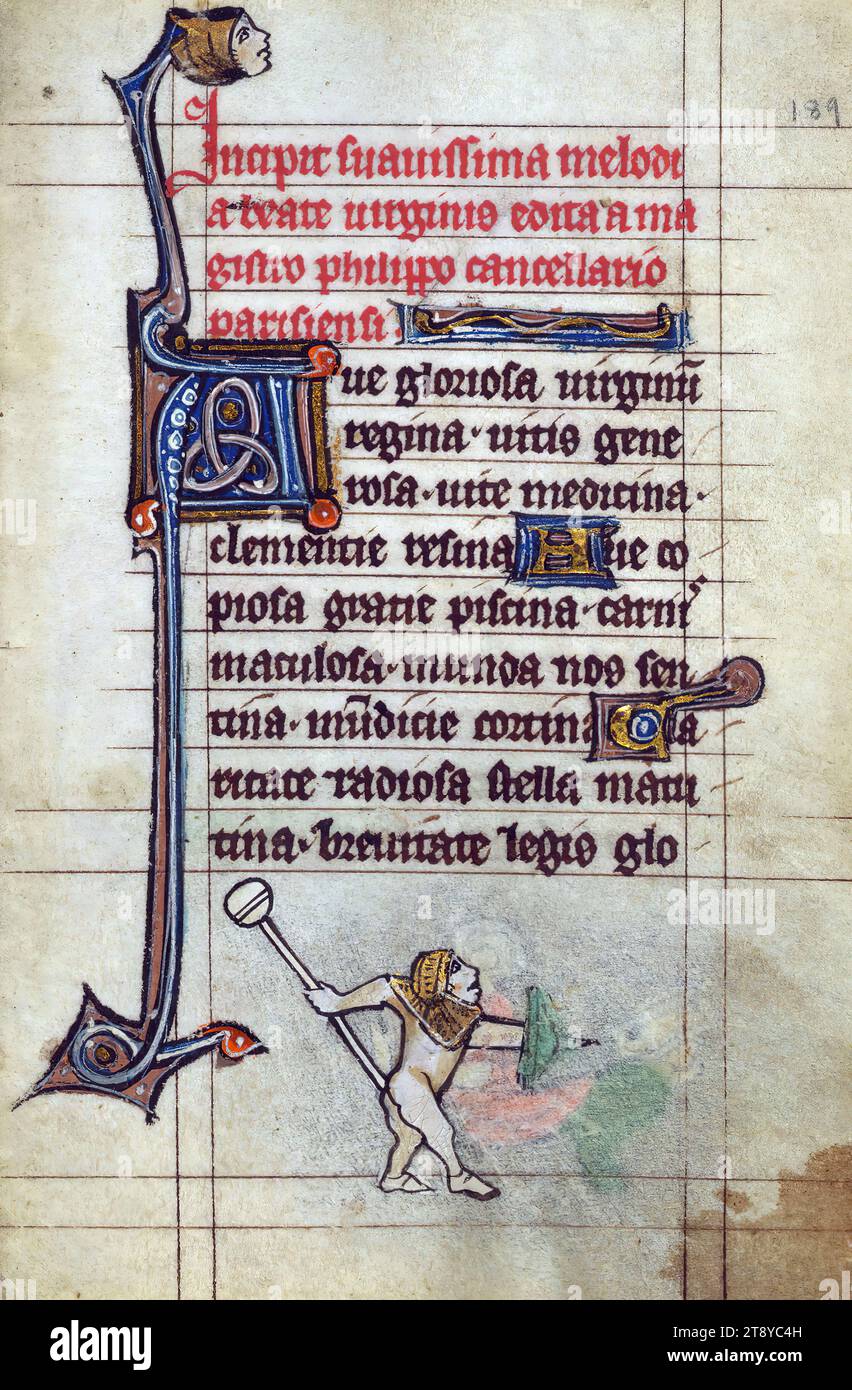 189
Incipit suauissima melodi
a beate uirginis edita a ma
gistro philippo cancellario
parisiensi.
Aue gloriosa uirginū
regina· uitis gene
rosa· uite medicina·
clementie resina Aue co
piosa gratie piscina· carnis
maculosa· munda nos sen
tina· mūdicie cortina Cla
ritate radiosa stella matu
tina· breuitate legis glo
alamy
Image ID: 2T8YC4H
www.alamy.com